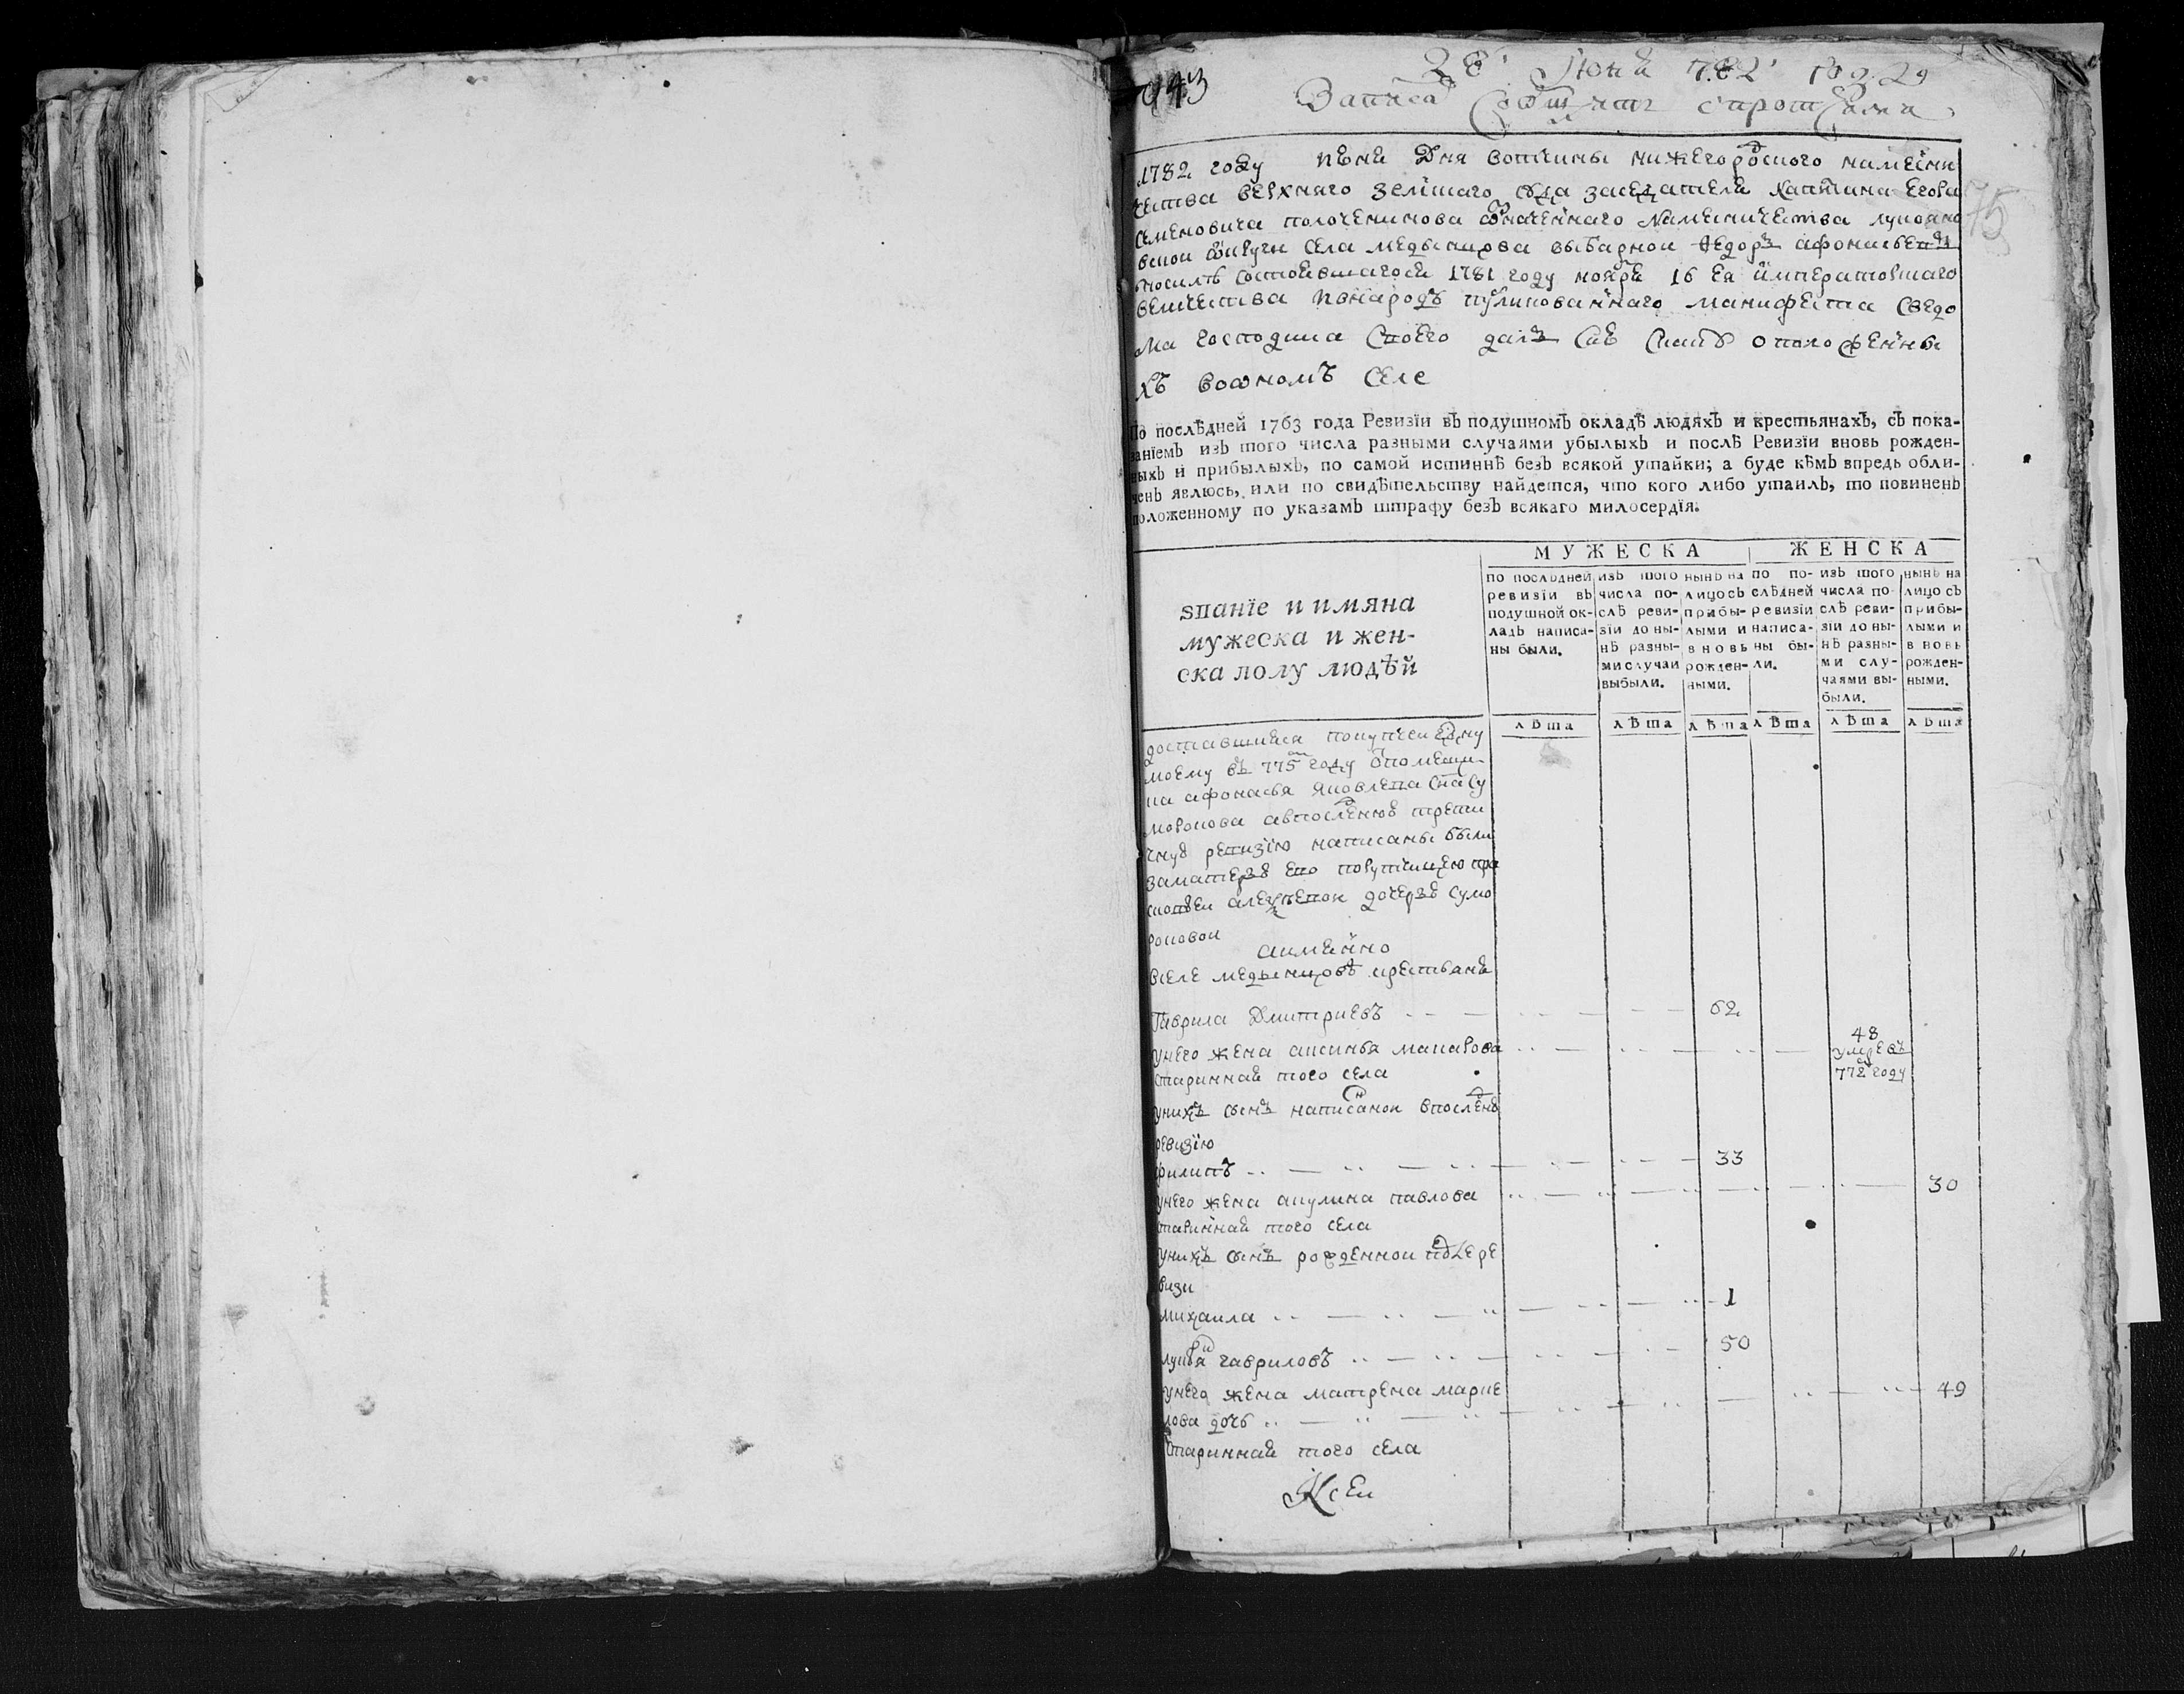 943
28 Июня 782 год 29
Записа
1782 году июня дня вотчины нижегородского намесни
чества верхняго земского суда заседателя капитана егора
семеновича полоченинова означеннаго намесничества лукояно
вскои округи села медынцова выборнои Ѳедоръ афонасьевъ
въ силѣ состоявшагося 1781 году ноября 16 ея императорскаго
величества и внародъ публикованнаго манифеста сведо
ма господина своего далъ сию скаску о положенны
хъ во оном селе
75
По послѣдней 1763 года Ревизїи въ подушномъ окладѣ людяхъ и крестьянахъ, съ пока-
занїемъ изъ того числа разными случаями убылыхъ и послѣ Ревизїи вновь рожден-
ныхъ и прибылыхъ, по самой истиннѣ безъ всякой утайки; а буде кѣмъ впредь обли-
ченъ явлюсь, или по свидѣтельству найдется, что кого либо утаилъ, то повиненъ
положенному по указамъ штрафу безъ всякаго милосердїя.
МУЖЕСКА ЖЕНСКА
званїе и имяна
мужеска и жен-
ска полу людѣй
по послѣдней
ревизїи въ
подушной ок-
ладъ написа-
ны были.
изъ того
числа по-
слѣ реви-
зїи до ны-
нѣ разны-
ми случаи
выбыли.
нынѣ на
лицо съ
прибы-
лыми и
вновь
рожден-
ными.
по по-
слѣдней
ревизїи
написа-
ны бы-
ли.
изъ того
числа по
слѣ реви-
зїи до ны-
нѣ разны-
ми слу-
чаями вы-
были.
нынѣ на
лицо съ
прибы-
лыми и
в новь
рожден-
ными.
лѣта лѣта лѣта лѣта лѣта лѣта
доставшияся покупкеи гдну
моему въ 775 году от помещи
ка афонасья яковлева сна су
морокова а в последнюю трети
чную ревизию написаны были
за матерью ево
алексеевои дочерью сумо
роковои
аименно
в селе медынцовѣ крестьяня
Гаврила Дмитриевъ 62
унего жена аксинья макарова 48
умре въ
772 году
стариннай того села
унихъ сынъ написанои в последнюю
ревизїю
филипъ 33
унего жена акулина павлова 30
стариннай того села
унихъ сынъ рожденнои после ре
визи
михаила 1
лукъян гавриловъ 50
унего жена матрена марке
лова дочь 49
стариннай того села